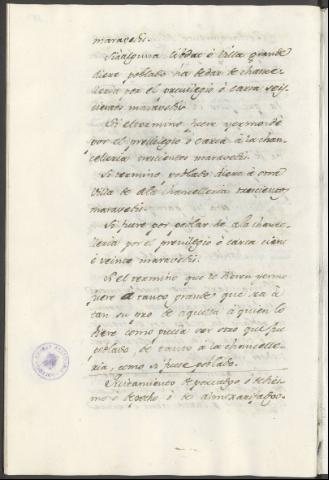 maravedis.
Si alguna Cibdat ó Villa grande
diere poblado ha de dar de chance-
lleria por el previlegio ó carta seis
cientos maravedis.
Si el termino fuere yermo dé
por el previlegio ó carta á la chan-
celleria trescientos maravedis.
Si termino poblado diere á otra
Villa dé á la chancelleria trescientos
maravedis.
Si fuere por poblar dé á la chance-
lleria por el previlegio ó carta ciento
é veinte maravedis.
Si el termino que le dieren yermo
fuere tanto grande que sea á
tan su pro de aquella á quien lo
diere como pecia por otro que fue
poblado, dé tanto á la chancelle-
ria, como si fuese poblado.
Quitamiento de portadgo ó de diez-
mo ó de pecho ó de almoxarifadgo.